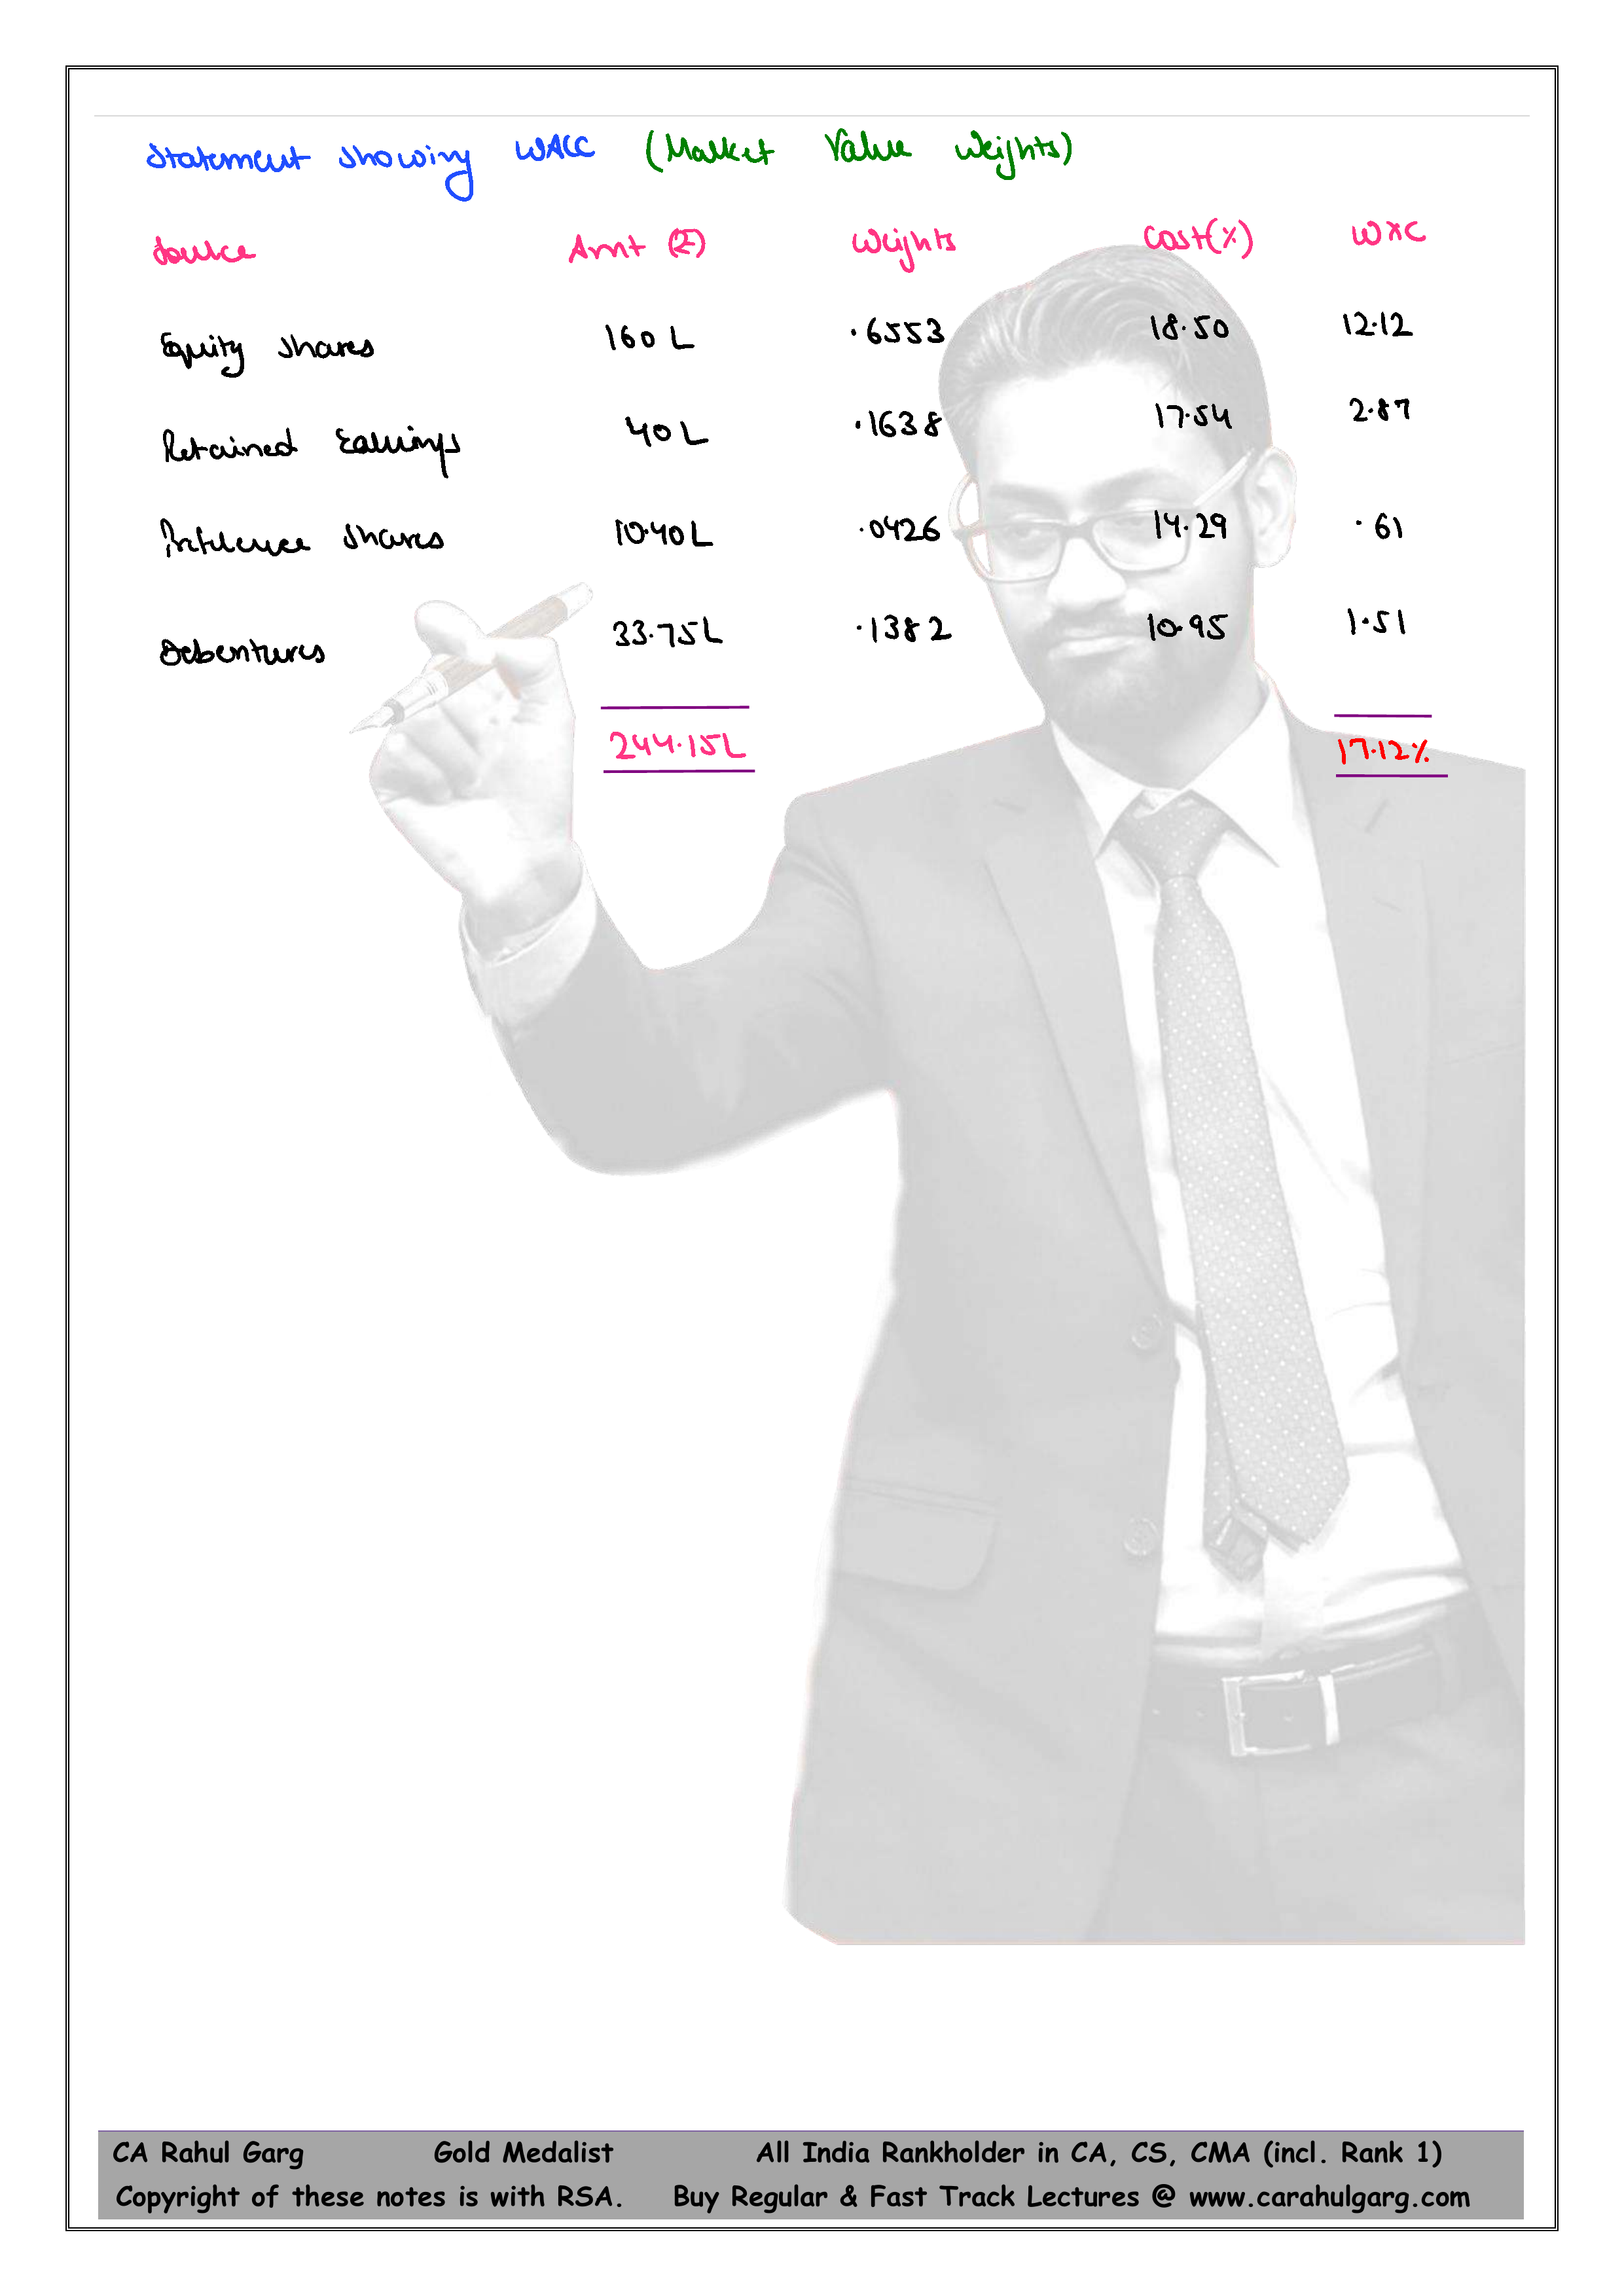 Statement Showing WACC (Market Value Weights)
Source Amt (₹) Weights Cost(%) W×C
Equity Shares 160 L .6553 18.50 12.12
Retained Earnings 40 L .1638 17.54 2.87
Preference Shares 10.40 L .0426 14.29 .61
Debentures 33.75 L .1382 10.95 1.51
244.15 L 17.12%
CA Rahul Garg Gold Medalist All India Rankholder in CA, CS, CMA (incl. Rank 1)
Copyright of these notes is with RSA. Buy Regular & Fast Track Lectures @ www.carahulgarg.com